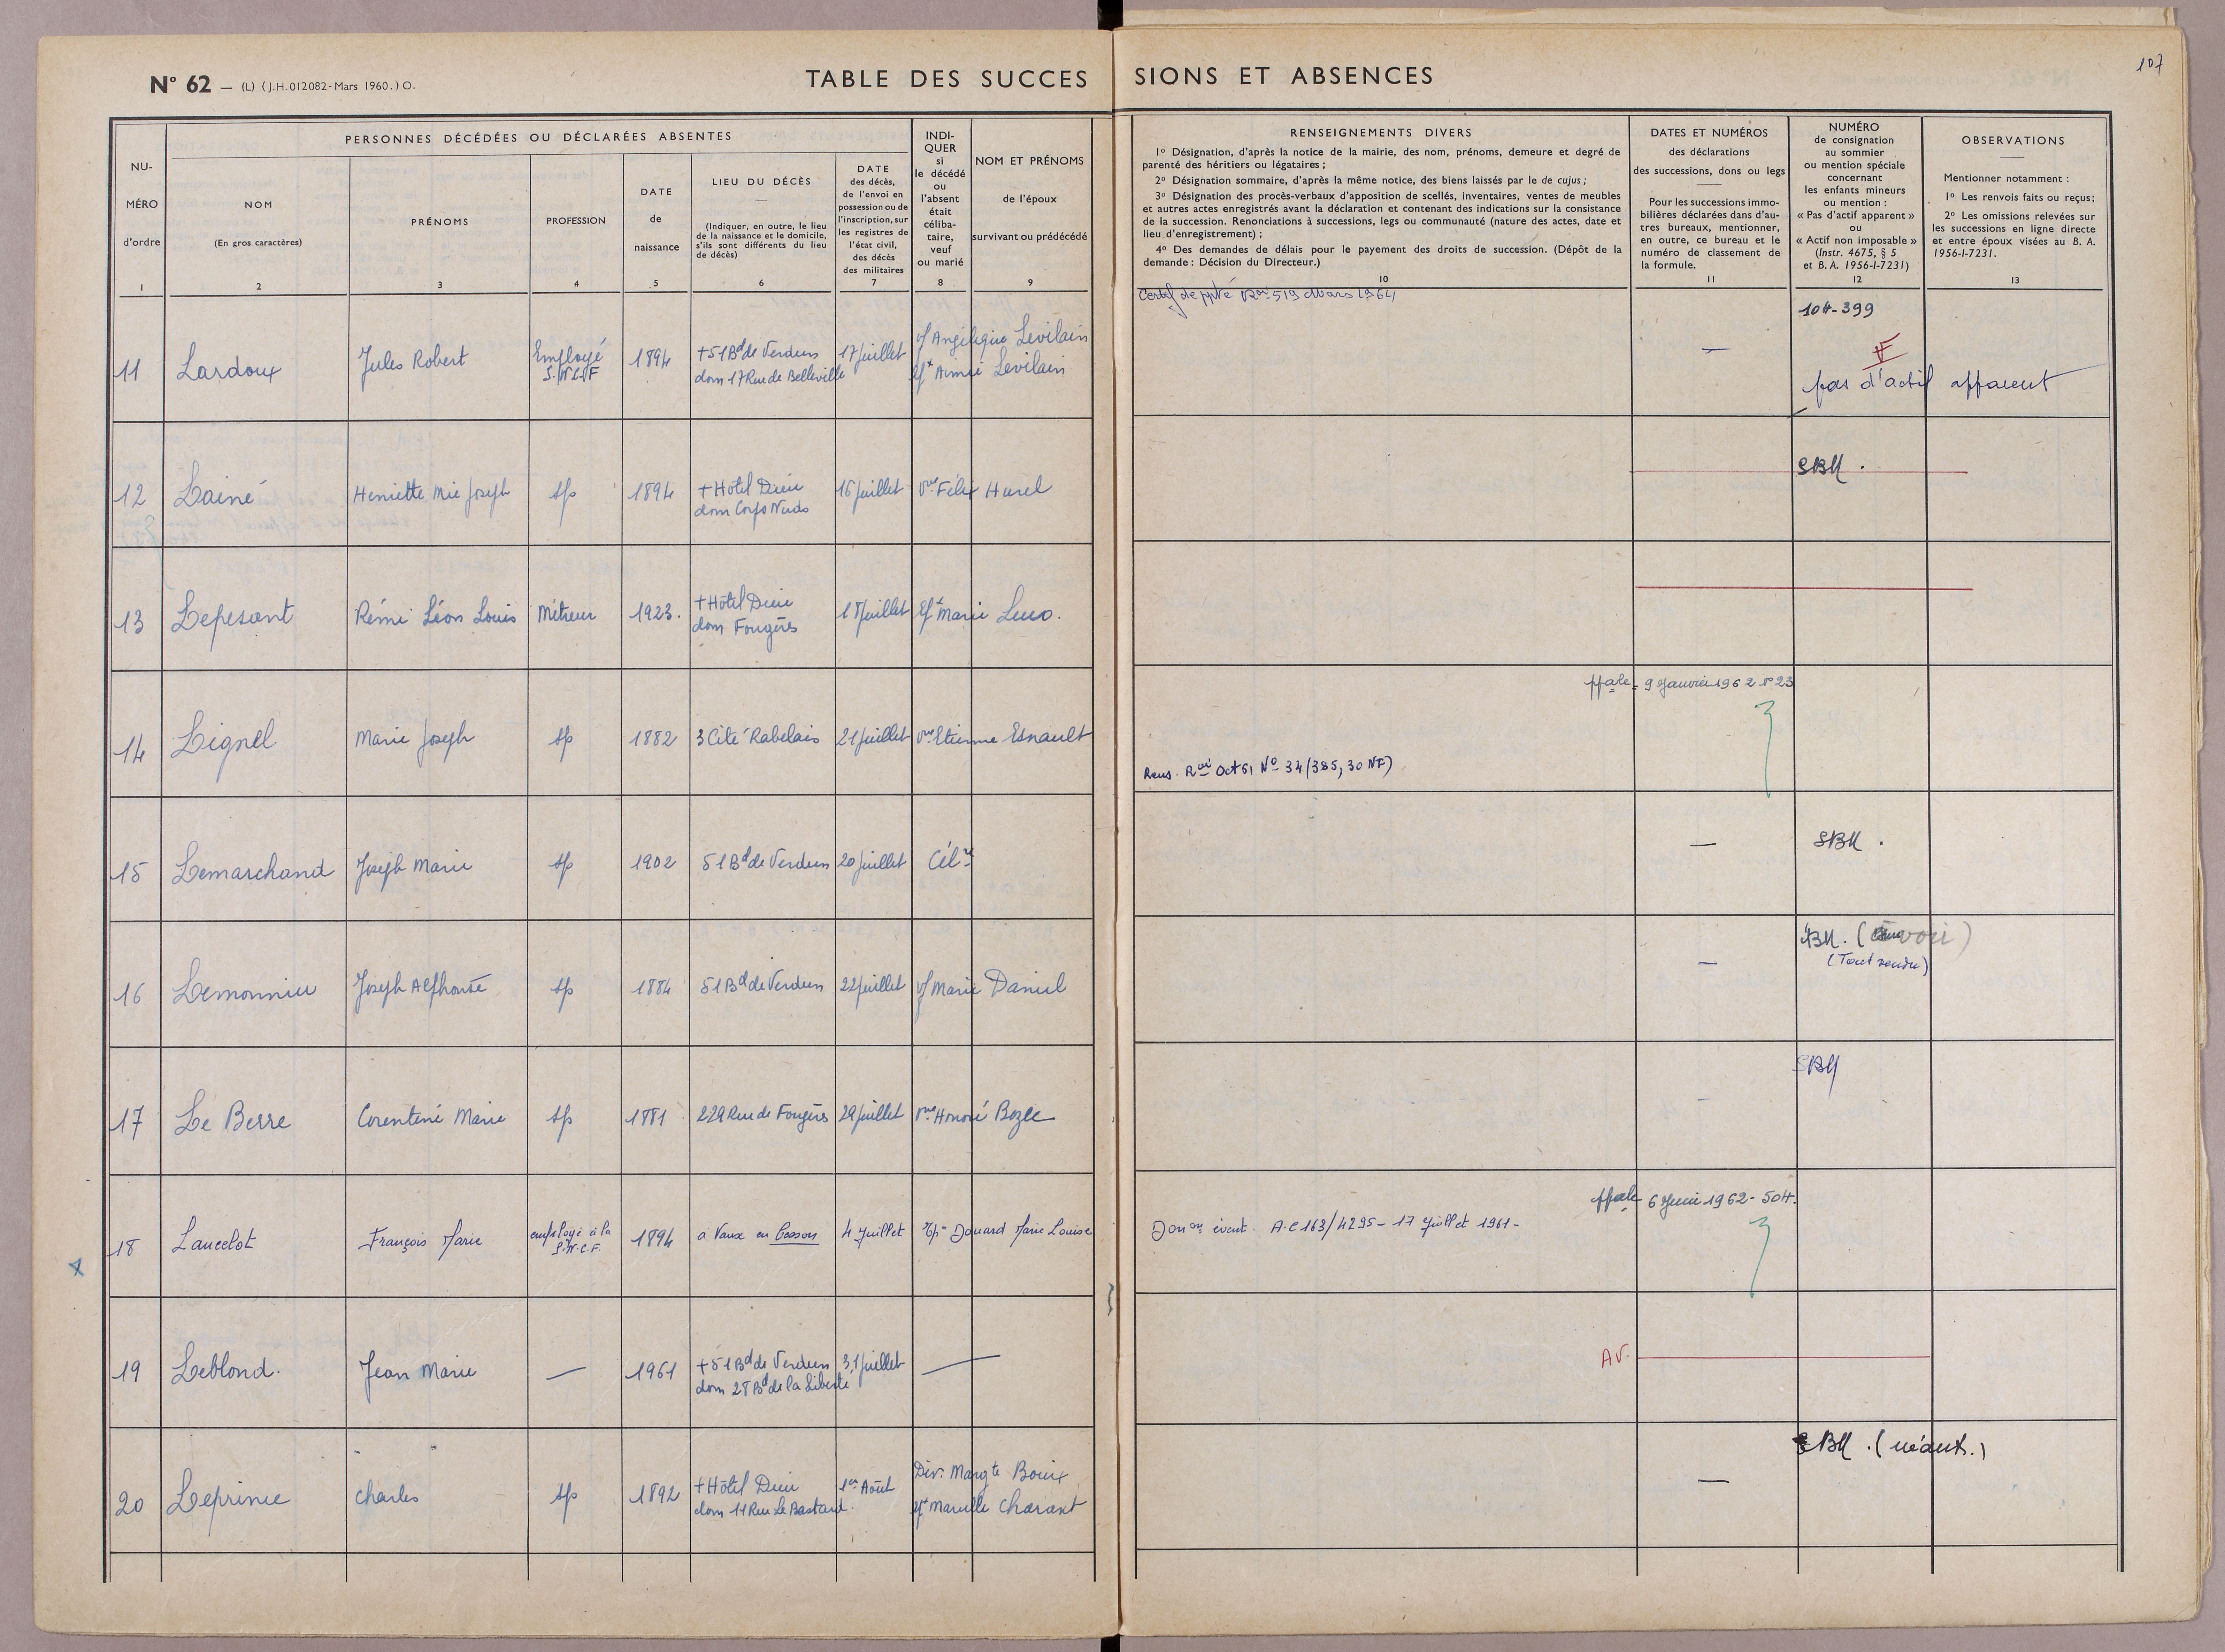 107
N° 62 — (L) (J.H.012082-Mars 1960.) O.
TABLE DES SUCCES SIONS ET ABSENCES
NU-
MÉRO
d'ordre
1
PERSONNES DÉCÉDÉES OU DÉCLARÉES ABSENTES
NOM
(En gros caractères)
2
PRÉNOMS
3
PROFESSION
4
DATE
de
naissance
5
LIEU DU DÉCÈS
(Indiquer, en outre, le lieu
de la naissance et le domicile,
s'ils sont différents du lieu
de décès)
6
DATE
des décès,
de l'envoi en
possession ou de
l'inscription, sur
les registres de
l'état civil,
des décès
des militaires
7
INDI-
QUER
si
le décédé
ou
l'absent
était
céliba-
taire,
veuf
ou marié
8
NOM ET PRÉNOMS
de l'époux
survivant ou prédécédé
9
RENSEIGNEMENTS DIVERS
1° Désignation, d'après la notice de la mairie, des nom, prénoms, demeure et degré de
parenté des héritiers ou légataires ;
2° Désignation sommaire, d'après la même notice, des biens laissés par le de cujus ;
3° Désignation des procès-verbaux d'apposition de scellés, inventaires, ventes de meubles
et autres actes enregistrés avant la déclaration et contenant des indications sur la consistance
de la succession. Renonciations à successions, legs ou communauté (nature des actes, date et
lieu d'enregistrement) ;
4° Des demandes de délais pour le payement des droits de succession. (Dépôt de la
demande : Décision du Directeur.)
10
DATES ET NUMÉROS
des déclarations
des successions, dons ou legs
Pour les successions immo-
bilières déclarées dans d'au-
tres bureaux, mentionner,
en outre, ce bureau et le
numéro de classement de
la formule.
11
NUMÉRO
de consignation
au sommier
ou mention spéciale
concernant
les enfants mineurs
ou mention :
« Pas d'actif apparent »
ou
« Actif non imposable »
(Instr. 4675, § 5
et B. A. 1956-I-7231)
12
OBSERVATIONS
Mentionner notamment :
1° Les renvois faits ou reçus;
2° Les omissions relevées sur
les successions en ligne directe
et entre époux visées au B. A.
1956-I-7231.
13
Certif de ppté 519 Mars 1964
104-399
11 Lardoux Jules Robert Employé +51Bd de Verdun 17 juillet vf Angélique Levilain
S.N.C.F 1894 dom 17 Rue de Belleville Aimée Levilain
— pas d'actif apparent
12 Lainé Henriette Mie Joseph sp 1894 + Hôtel Dieu 16 juillet vve Félix Hurel SBM .
dom Corps Nuds
13 Lepesant Rémi Léon Louis Métreur 1923. + Hôtel Dieu 18 juillet Marie Luco.
dom Fougères
ppale = 9 Janvier 1962 n° 23
14 Lignel Marie Joseph sp 1882 3 Cité Rabelais 21 juillet vve Etienne Esnault
Rens. Oct 61 N° 34 (385,30 NF)
15 Lemarchand Joseph Marie sp 1902 51Bd de Verdun 20 juillet Célre — SBM .
SBM. ( voir)
(Tout vendu)
16 Lemonnier Joseph Alphonse sp 1884 51Bd de Verdun 22 juillet vf Marie Daniel —
SBM
17 Le Berre Corentine Marie sp 1881 229 Rue de Fougères 29 juillet vve Honoré Bozec -
ppale 6 Juin 1962 - 504.
18 Lancelot François Marie employé à la S.N.C.F. 1894 à Vaux en 4 Juillet Ep. Douard Marie Louise Donon évent. A.C 163/4295 - 17 Juillet 1961 -
19 Leblond. Jean Marie — 1961 +51Bd de Verdun 31 juillet — AV.
dom 28 Bd de la Liberté
SBM . (néant.)
20 Leprince Charles sp 1892 + Hôtel Dieu 1er Août Div. Margte Bouix —
dom 14 Rue Le Bastard. Marcelle Charant